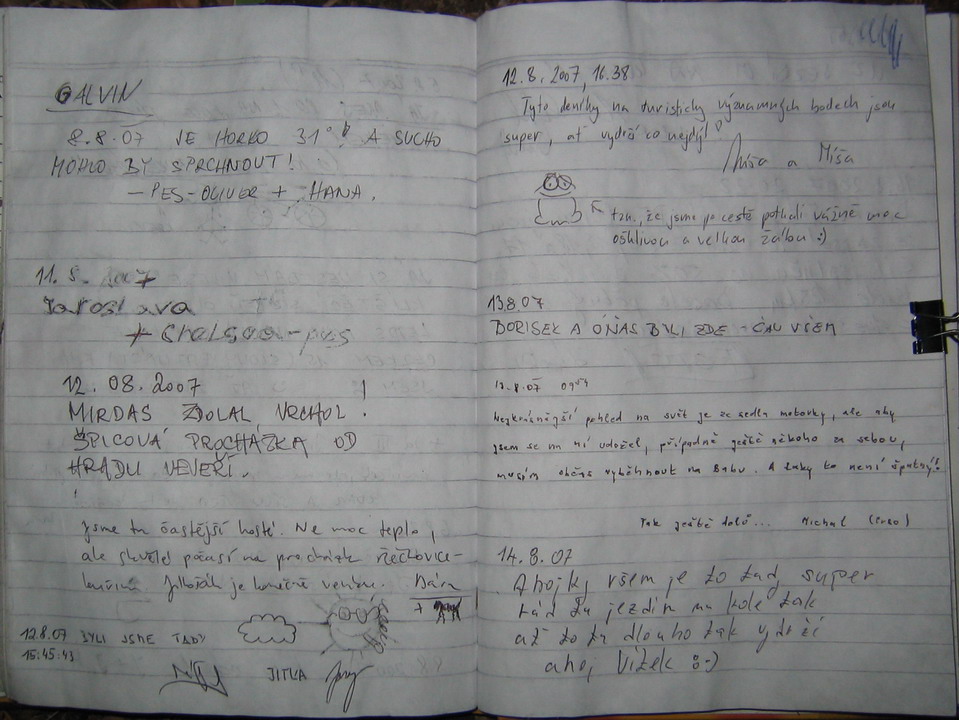 GALVIN
8.8.07 JE HORKO 31° A SUCHO
MOHLO BY SPRCHNOUT!
– PES-OLIVER + HANA.
11.
Jaroslava
+ – pes
12.08.2007
MIRDAS ZDOLAL VRCHOL!
ŠPICOVÁ PROCHÁZKA OD
HRADU VEVEŘÍ.
Jsme tu častější hosté. Ne moc teplo,
ale skvělé počasí na procházk Řečkovice-
je konečně venku. Bára
+
12.8.07 BYLI JSME TADY
15:45:43
JITKA
12.8.2007, 16.38
Tyto deníky na turisticky významných bodech jsou
super, ať vydrží co nejdýl!
Míša a Míša
tzn., že jsme po cestě potkali vážně moc
ošklivou a velkou žábu :)
13.8.07
BORISEK A OŇAS BYLI ZDE - ČAU VŠEM
Nejkrásnější pohled na svět je ze sedla motorky, ale aby
jsem se na ní udržel, případně ještě někoho za sebou,
musím občas vyběhnout na Babu. A taky to není špatný!
Tak ještě dolů... Michal
14.8.07
Ahojky všem je to tady super
rád tu jezdím na kole tak
ať to tu dlouho tak vydrží
ahoj Vítek :-)